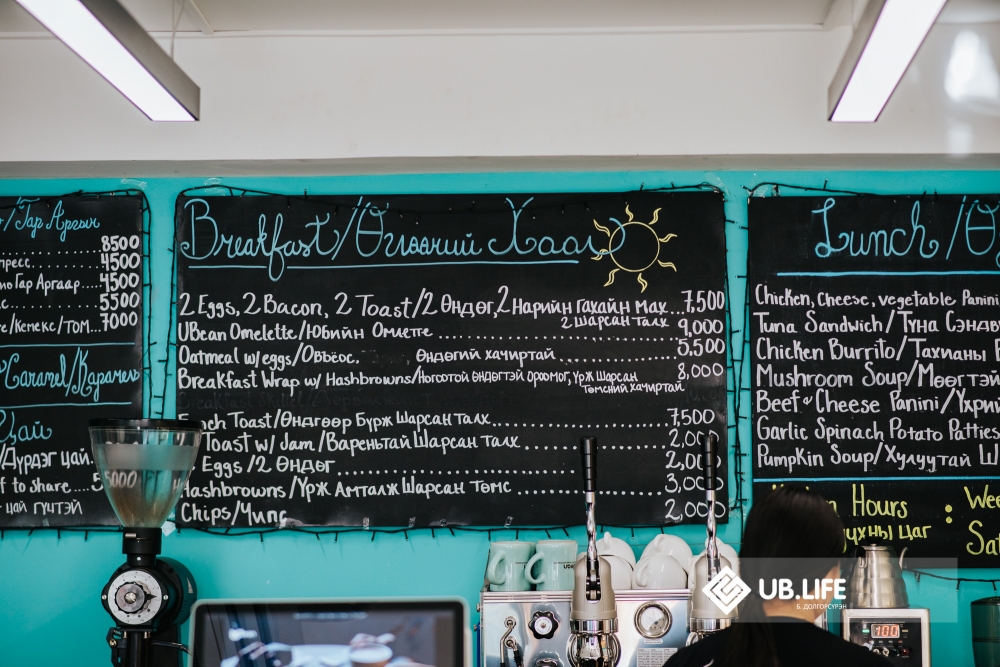 Гар Аргыч
8500
4500
Гар Аргаар....4500
5500
/Кекекс/том...7000
Caramel/Карамель
Цай
/Дүрдэг цай
5000
f to share....
цай гүчтэй
Breakfast/Өглөөний Хоол
2 Eggs, 2 Bacon, 2 Toast/2 Өндөг, 2 Нарийн Гахайн Мах...7,500
2 Шарсан талх
UBean Omelette/Юбийн Омлете 9,000
Oatmeal w/eggs/Овъёос, Өндөгий хачиртай 5,500
Breakfast Wrap w/ Hashbrowns/Ногоотой өндөгтэй ороомог, Үрж Шарсан 8,000
Төмсний хачиртай
Toast/Өндгөөр Бүрж Шарсан Талх 7,500
Toast w/ Jam/Вареньтай Шарсан Талх
Eggs/2 Өндөг
Hashbrowns/Үрж Амталж Шарсан Төмс 3,000
Chips/Чипс 2,000
Lunch/
Chicken, Cheese, vegetable Panini
Tuna Sandwich/Туна
Chicken Burrito/Тахианы
Mushroom Soup/
Beef & Cheese Panini/
Garlic Spinach Potato Patties
Pumpkin Soup/Хулуутай
Hours : We
цаг Sat
UB.LIFE
Б. ДОЛГОРСҮРЭН
100